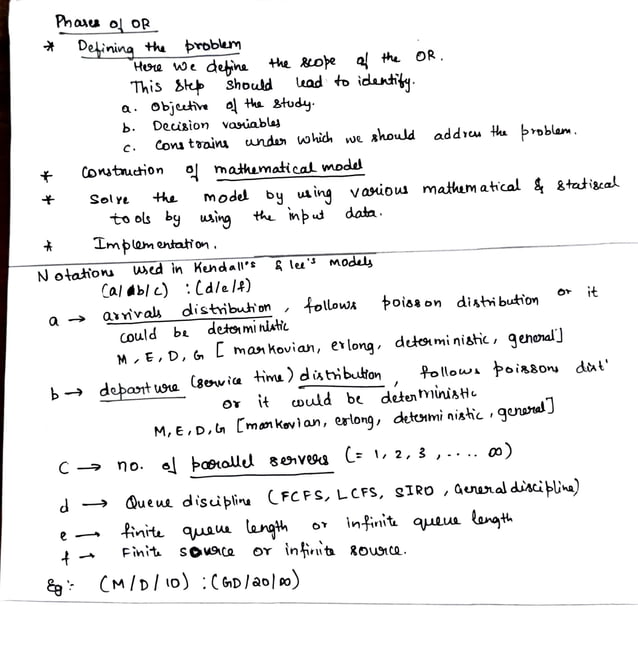 Phases of OR
* Defining the problem
Here we define the scope of the OR.
This step should lead to identify.
a. Objective of the study.
b. Decision variables
c. Constrains under which we should address the problem.
* Construction of mathematical model
* Solve the model by using various mathematical & statiscal
tools by using the input data.
* Implementation.
Notations used in Kendall's & lee's models
(a/b/c) : (d/e/f)
a → arrivals distribution, follows poisson distribution or it
could be deterministic
M, E, D, G [markovian, erlong, deterministic, general]
b → departure (service time) distribution, follows poissons dist'
or it could be deterministic
M, E, D, G [markovian, erlong, deterministic, general]
C → no. of parallel servers (= 1, 2, 3, .... ∞)
d → Queue discipline (FCFS, LCFS, SIRO, General discipline)
e → finite queue length or infinite queue length
f → Finite source or infinite source.
Eg :- (M/D/10) : (GD/20/∞)